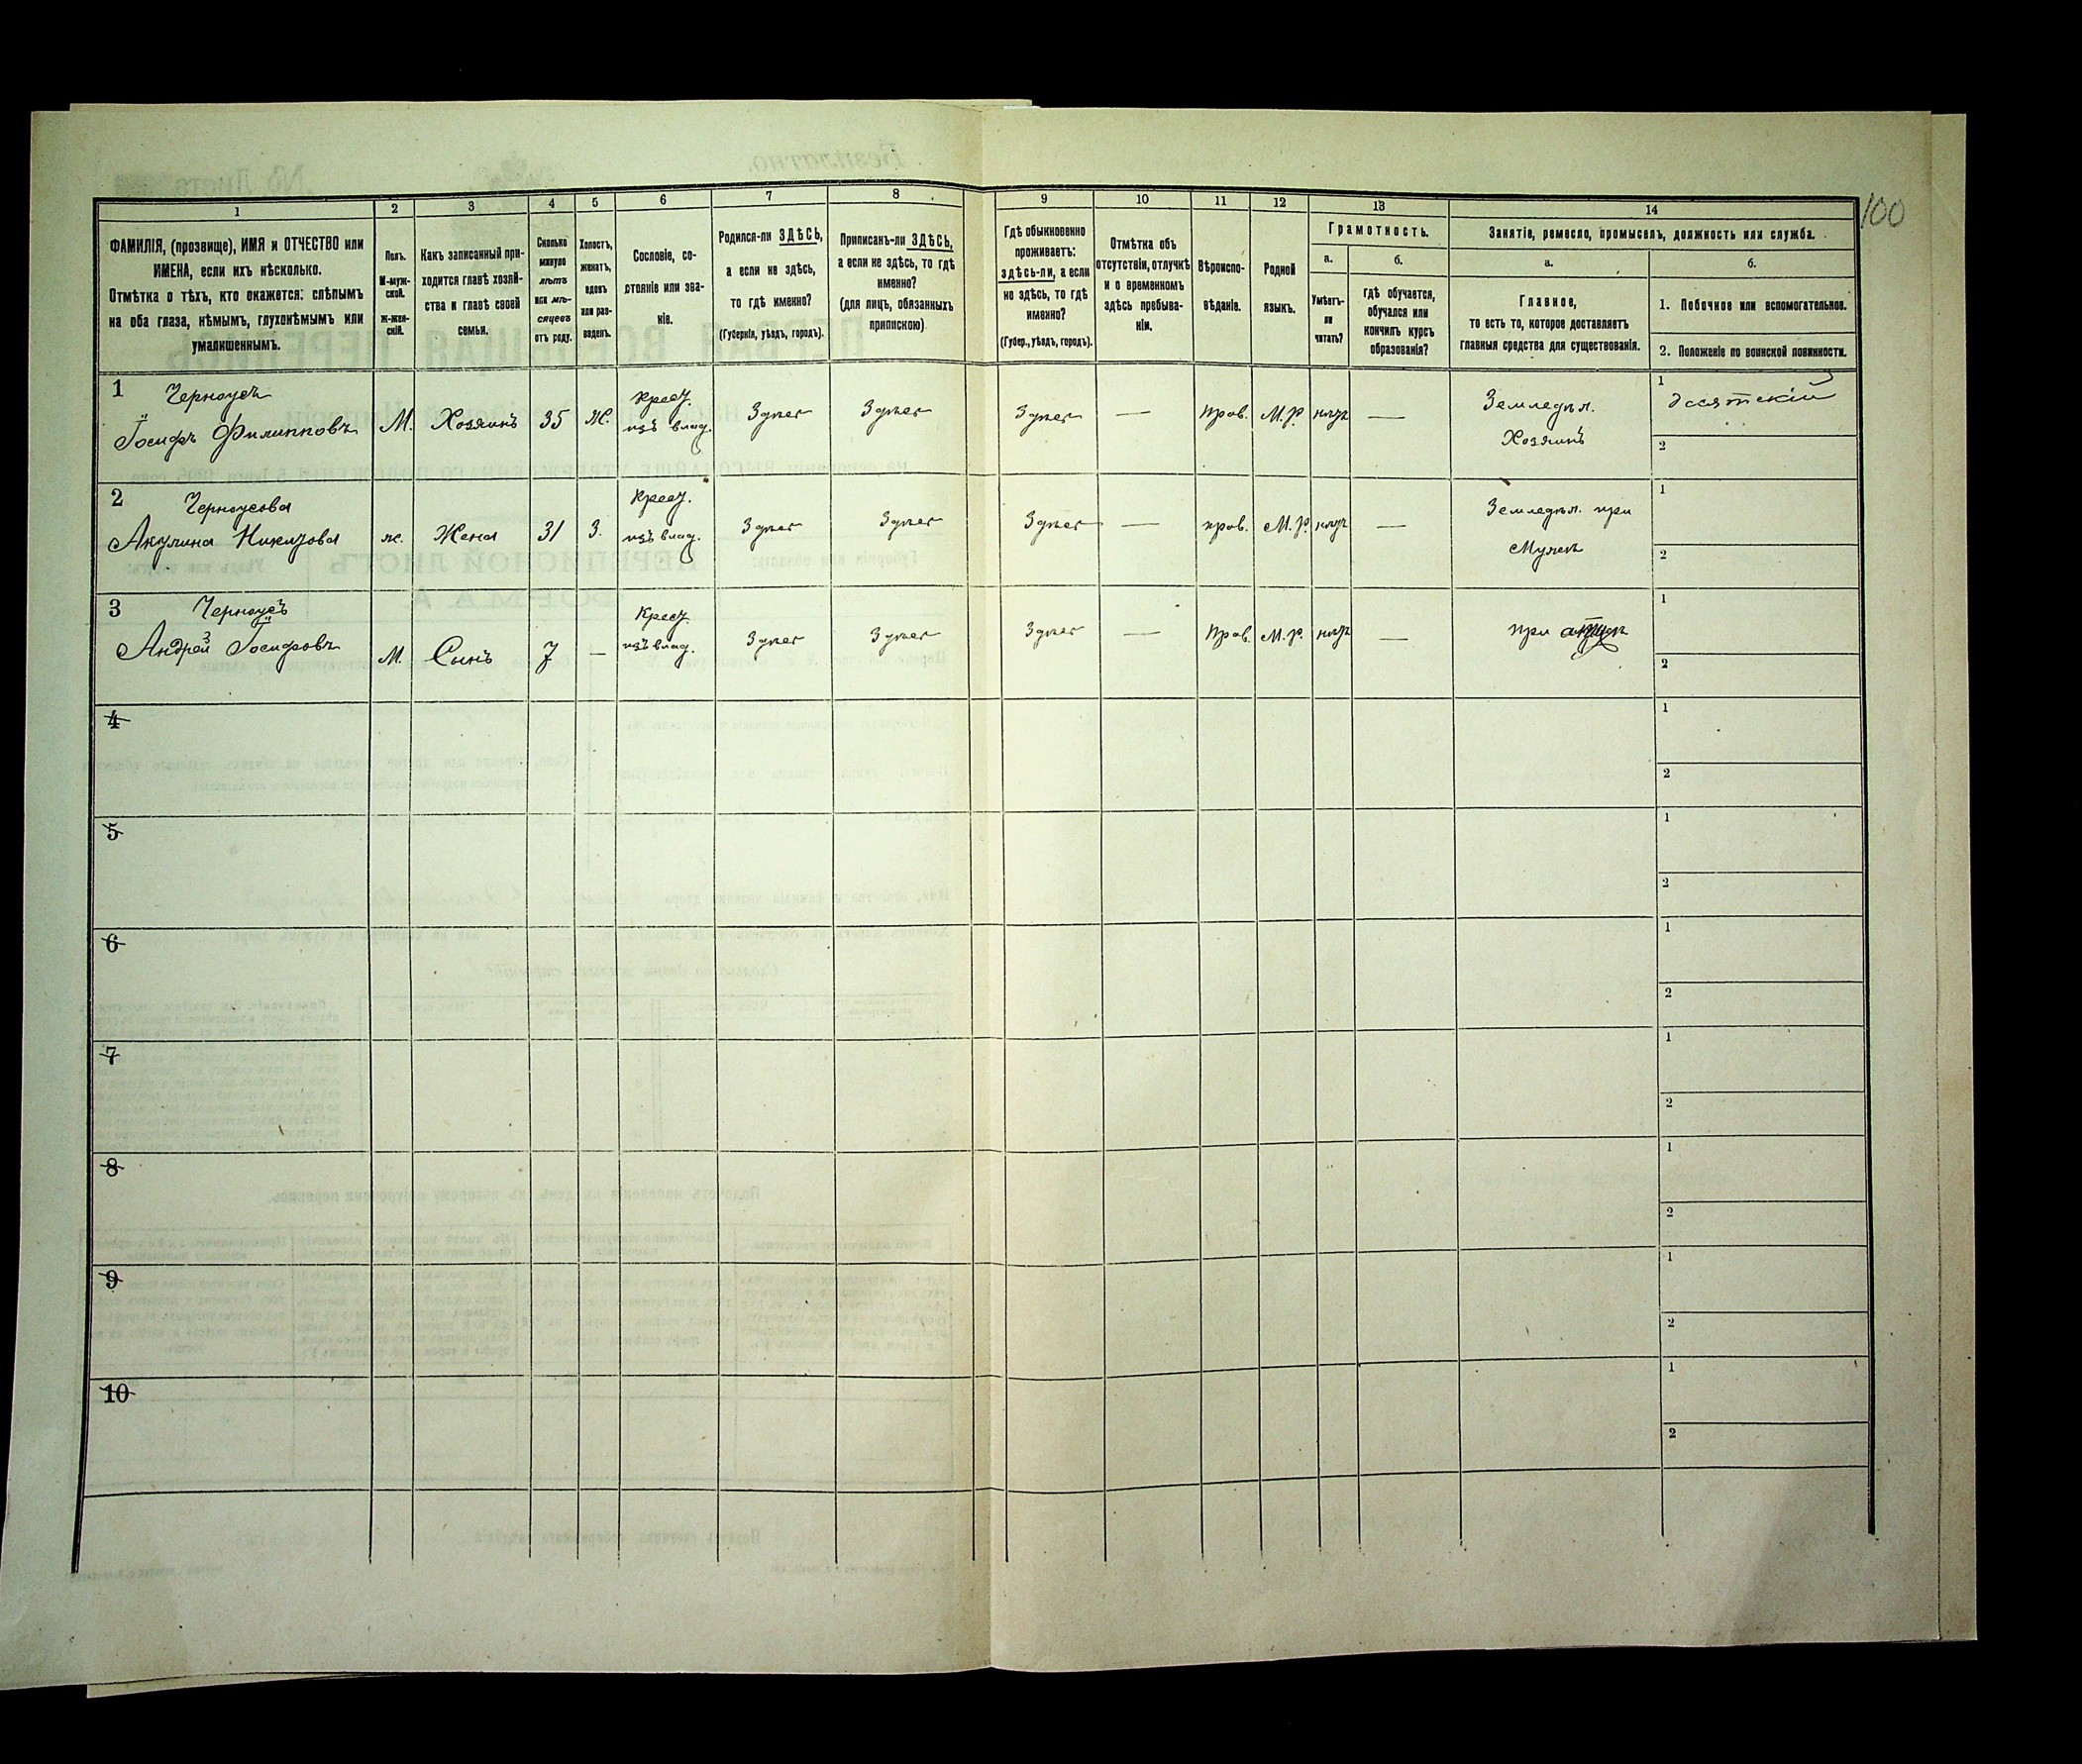 100
1 2 3 4 5 6 7 8 9 10 11 12 13 14
ФАМИЛІЯ, (прозвище), ИМЯ и ОТЧЕСТВО или
ИМЕНА, если ихъ нѣсколько.
Отмѣтка о тѣхъ, кто окажется: слѣпымъ
на оба глаза, нѣмымъ, глухонѣмымъ или
умалишеннымъ.
Полъ.
М-муж-
ской.
Ж-жен-
скій.
Какъ записанный при-
ходится главѣ хозяй-
ства и главѣ своей
семьи.
Сколько
минуло
лѣтъ
или мѣ-
сяцевъ
отъ роду.
Холостъ,
женатъ,
вдовъ
или раз-
веденъ.
Сословіе, со-
стояніе или зва-
ніе.
Родился-ли ЗДѢСЬ,
а если не здѣсь,
то гдѣ именно?
(Губернія, уѣздъ, городъ).
Приписанъ-ли ЗДѢСЬ,
а если не здѣсь, то гдѣ
именно?
(для лицъ, обязанныхъ
припискою)
Гдѣ обыкновенно
проживаетъ:
здѣсь-ли, а если
не здѣсь, то гдѣ
именно?
(Губер., уѣздъ, городъ).
Отмѣтка объ
отсутствіи, отлучкѣ
и о временномъ
здѣсь пребыва-
ніи.
Вѣроиспо-
вѣданіе.
Родной
языкъ.
Грамотность.
а.
Умѣетъ-
ли
читать?
б.
Гдѣ обучается,
обучался или
кончилъ курсъ
образованія?
Занятіе, ремесло, промыселъ, должность или служба.
а.
Главное,
то есть то, которое доставляетъ
главныя средства для существованія.
б.
1. Побочное или вспомогательное.
2. Положеніе по воинской повинности.
1 Черноусъ
Іосифъ Филипповъ
М.
Хозяинъ
35
Ж.
Крест.
изъ влад.
Здѣсь
Здѣсь
Здѣсь
—
Прав.
М. Р.
нѣтъ
—
Земледѣл.
Хозяинъ
1
Десятскій
2
2 Черноусова
Акулина Никитова
ж.
Жена
31
З.
Крест.
изъ влад.
Здѣсь
Здѣсь
Здѣсь
—
прав.
М. Р.
нѣтъ
—
Земледѣл. при
Мужѣ
1
2
3 Черноусъ
Андрей Іосифовъ
М.
Сынъ
7
—
Крест.
изъ влад.
Здѣсь
Здѣсь
Здѣсь
—
Прав.
М. Р.
нѣтъ
—
при отцѣ
1
2
4
1
2
5
1
2
6
1
2
7
1
2
8
1
2
9
1
2
10
1
2